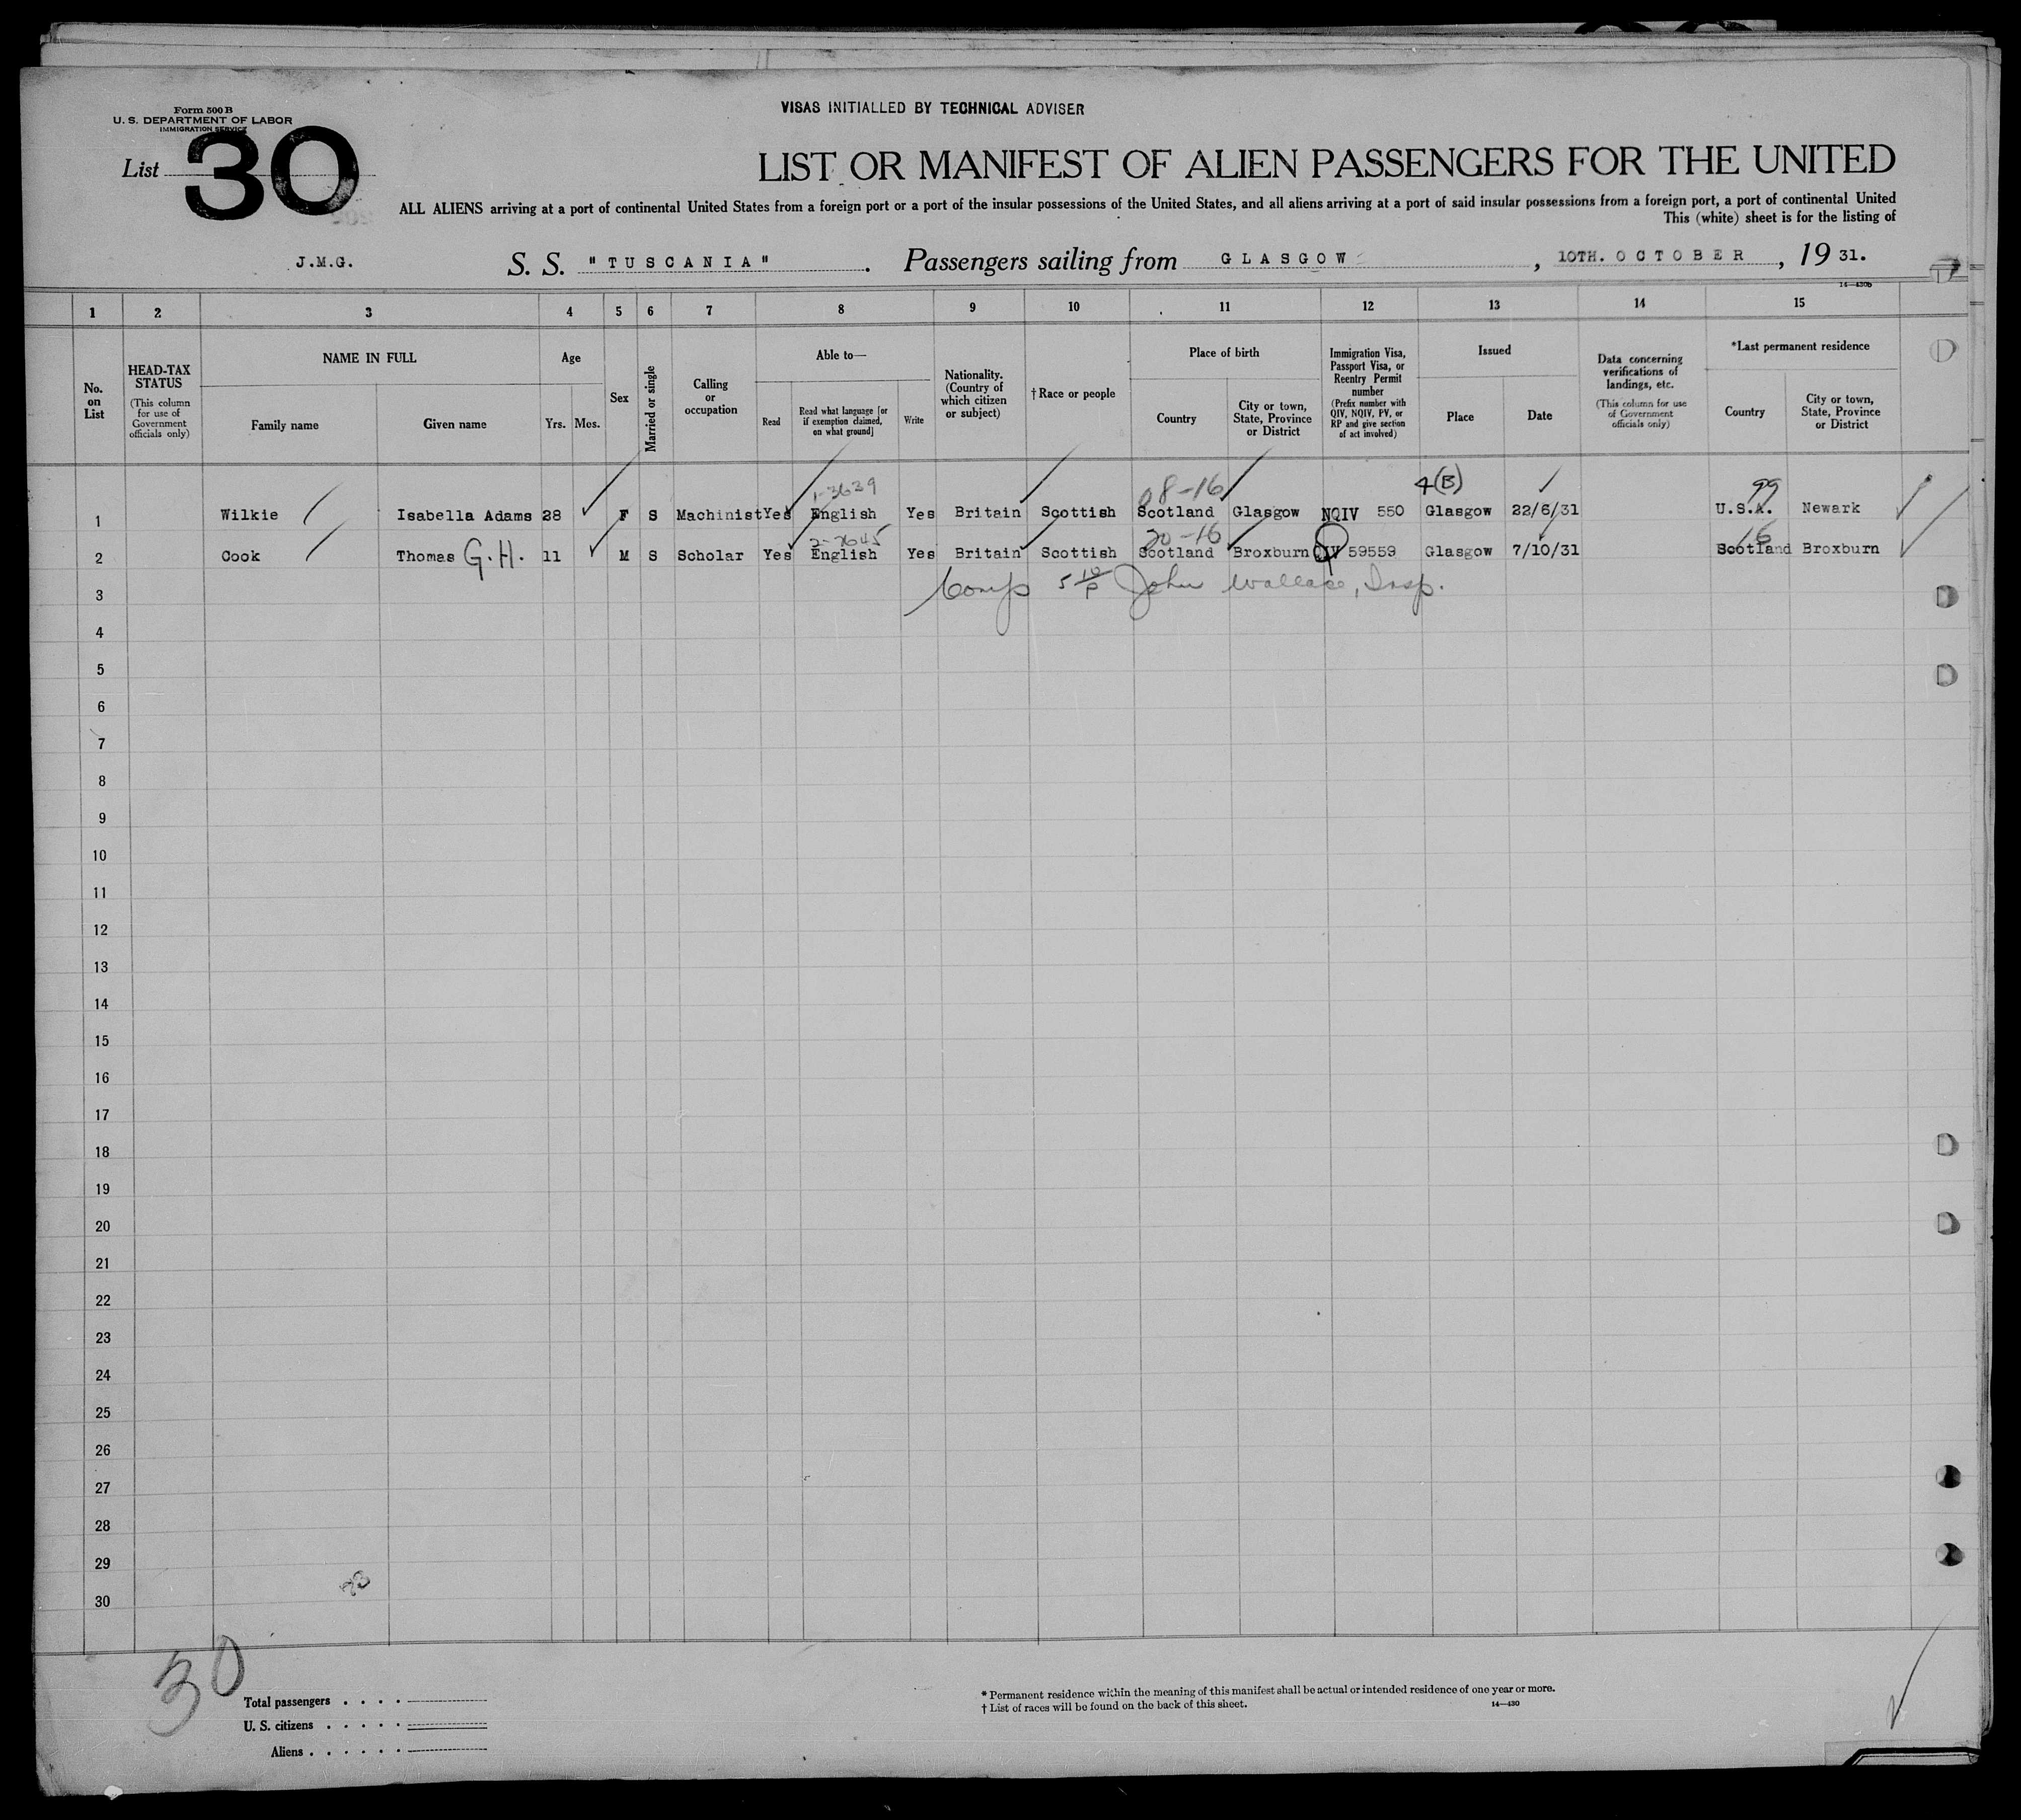 VISAS INITIALLED BY TECHNICAL ADVISER
Form 500 B
U. S. DEPARTMENT OF LABOR
IMMIGRATION SERVICE
List 30
LIST OR MANIFEST OF ALIEN PASSENGERS FOR THE UNITED
ALL ALIENS arriving at a port of continental United States from a foreign port or a port of the insular possessions of the United States, and all aliens arriving at a port of said insular possessions from a foreign port, a port of continental United
This (white) sheet is for the listing of
J.M.G. S. S. "TUSCANIA". Passengers sailing from GLASGOW, 10TH. OCTOBER, 19 31.
14—430b
1 2 3 4 5 6 7 8 9 10 11 12 13 14 15
No. on List
HEAD-TAX STATUS
(This column for use of Government officials only)
NAME IN FULL
Family name
Given name
Age
Yrs. Mos.
Sex
Married or single
Calling or occupation
Able to—
Read
Read what language [or if exemption claimed, on what ground]
Write
Nationality. (Country of which citizen or subject)
† Race or people
Place of birth
Country
City or town, State, Province or District
Immigration Visa, Passport Visa, or Reentry Permit number
(Prefix number with QIV, NQIV, PV, or RP and give section of act involved)
Issued
Place
Date
Data concerning verifications of landings, etc.
(This column for use of Government officials only)
*Last permanent residence
Country
City or town, State, Province or District
1-3639 08-16 4(B) 99
1 Wilkie Isabella Adams 28 F S Machinist Yes English Yes Britain Scottish Scotland Glasgow NQIV 550 Glasgow 22/6/31 U.S.A. Newark
2-3645 20-16 16
2 Cook Thomas G.H. 11 M S Scholar Yes English Yes Britain Scottish Scotland Broxburn QIV 59559 Glasgow 7/10/31 Scotland Broxburn
3 John Wallace, Insp.
4
5
6
7
8
9
10
11
12
13
14
15
16
17
18
19
20
21
22
23
24
25
26
27
28
29
30
30
Total passengers
U. S. citizens
Aliens
* Permanent residence within the meaning of this manifest shall be actual or intended residence of one year or more.
† List of races will be found on the back of this sheet.
14—430